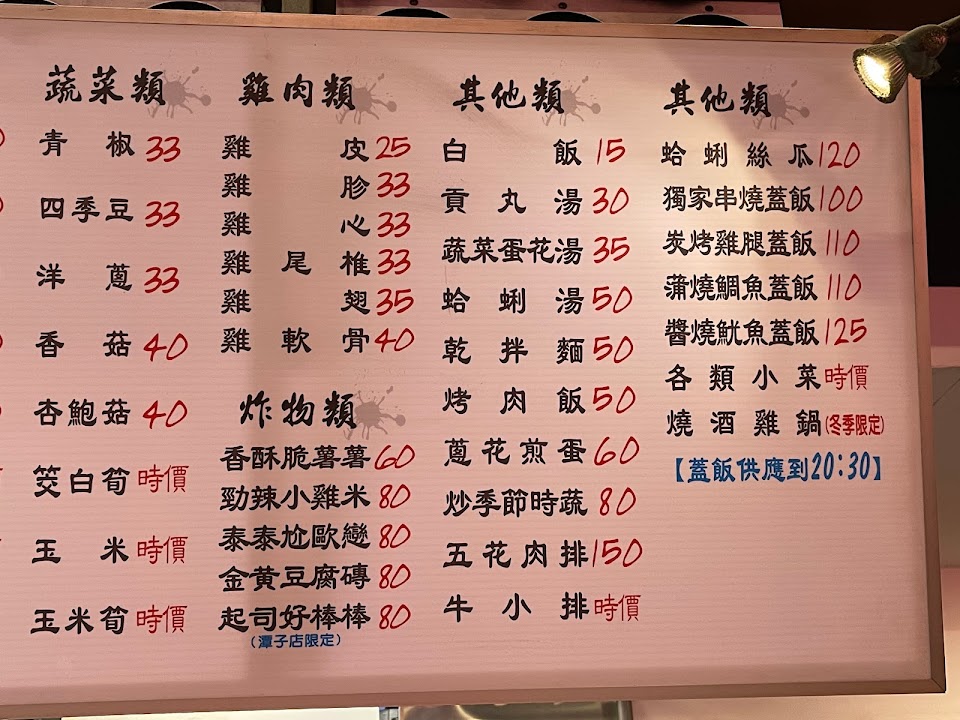 蔬菜類
青椒 33
四季豆 33
洋蔥 33
香菇 40
杏鮑菇 40
筊白筍 時價
玉米 時價
玉米筍 時價
雞肉類
雞皮 25
雞胗 33
雞心 33
雞尾椎 33
雞翅 35
雞軟骨 40
炸物類
香酥脆薯薯 60
勁辣小雞米 80
泰泰尬歐戀 80
金黃豆腐磚 80
起司好棒棒 80
(潭子店限定)
其他類
白飯 15
貢丸湯 30
蔬菜蛋花湯 35
蛤蜊湯 50
乾拌麵 50
烤肉飯 50
蔥花煎蛋 60
炒季節時蔬 80
五花肉排 150
牛小排 時價
其他類
蛤蜊絲瓜 120
獨家串燒蓋飯 100
炭烤雞腿蓋飯 110
蒲燒鯛魚蓋飯 110
醬燒魷魚蓋飯 125
各類小菜 時價
燒酒雞鍋(冬季限定)
【蓋飯供應到20:30】